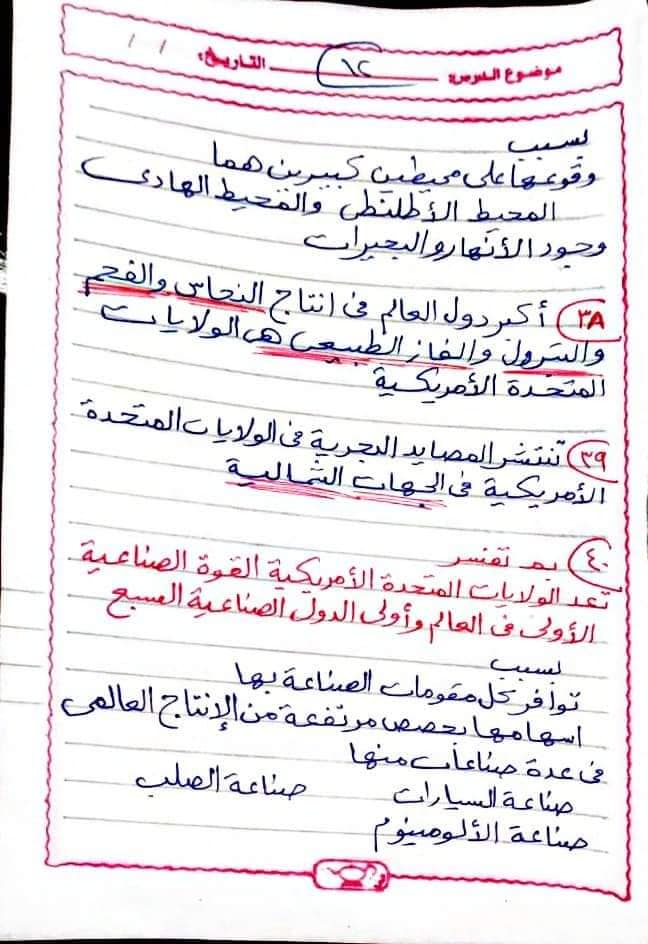 موضوع الدرس: ١٢ التاريخ: / /
بسبب
وقوعها على محيطين كبيرين هما
المحيط الأطلنطى والمحيط الهادى
وجود الأنهار والبحيرات
٣٨ أكبر دول العالم فى انتاج النحاس والفحم
والبترول والغاز الطبيعى هى الولايات
المتحدة الأمريكية
٣٩ تنتشر المصايد البحرية فى الولايات المتحدة
الأمريكية فى الجهات الشمالية
٤٠ بم تفسر
تعد الولايات المتحدة الأمريكية القوة الصناعية
الأولى فى العالم وأولى الدول الصناعية السبع
بسبب
توافر كل مقومات الصناعة بها
اسهامها بحصص مرتفعة من الإنتاج العالمى
فى عدة صناعات منها
صناعة السيارات صناعة الصلب
صناعة الألومينوم